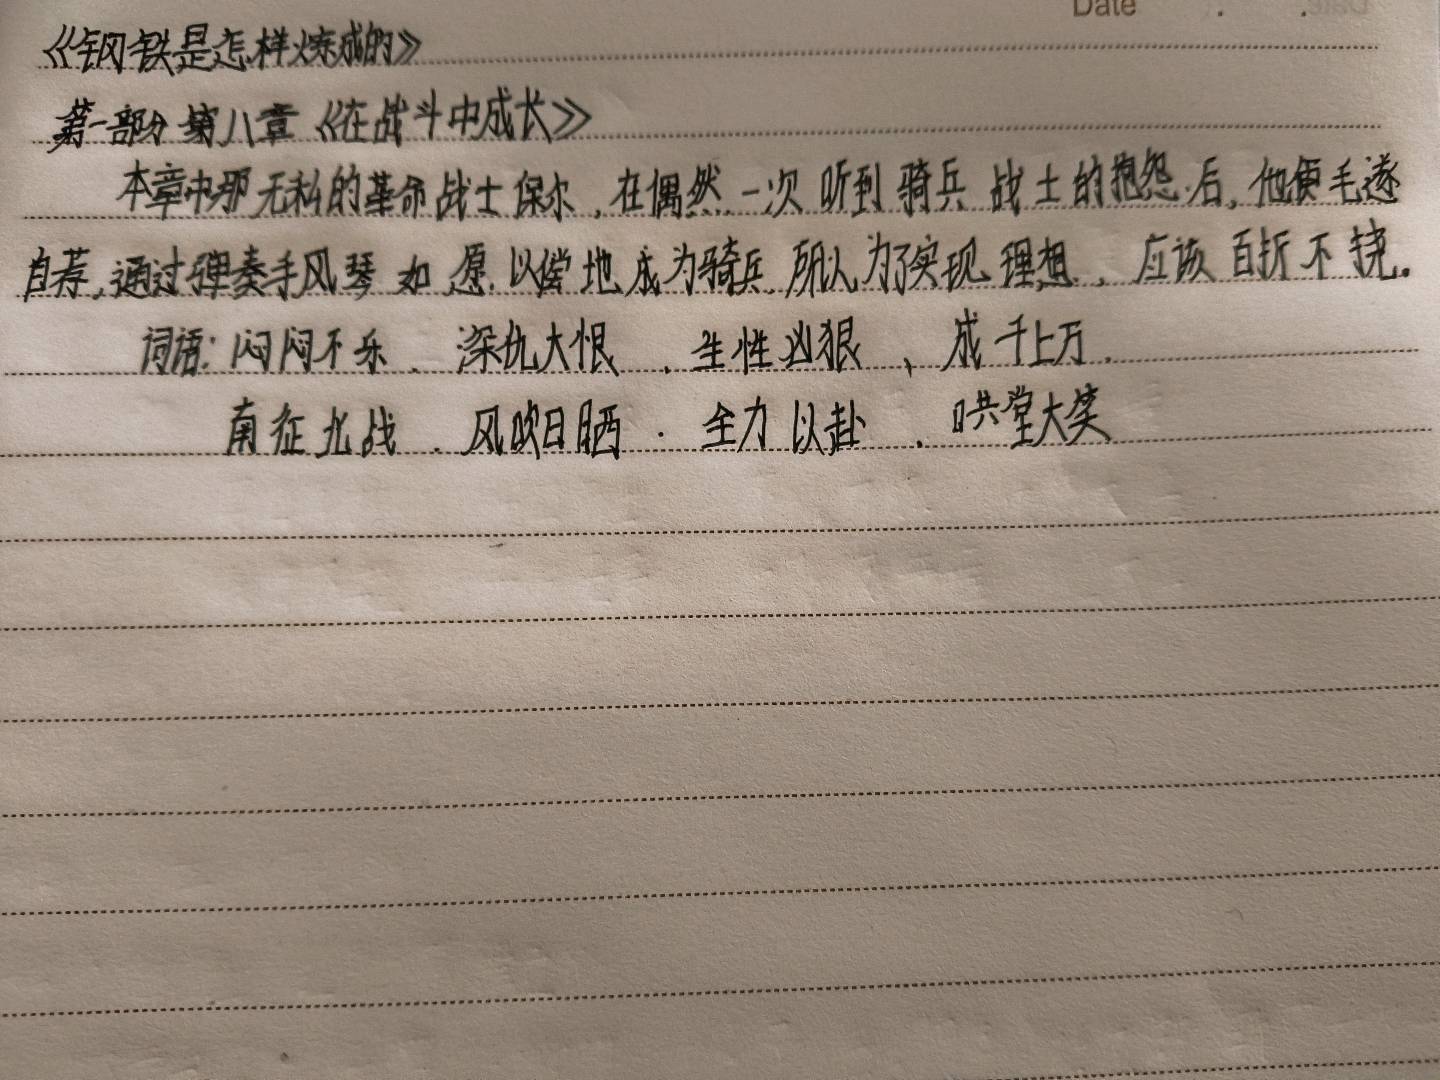 Date
《钢铁是怎样炼成的》
第一部分 第八章《在战斗中成长》
本章中那无私的革命战士保尔,在偶然一次听到骑兵战士的抱怨后,他便毛遂
自荐,通过弹奏手风琴如愿以偿地成为骑兵,所以为了实现理想,应该百折不挠。
词语:闷闷不乐、深仇大恨、生性凶狠、成千上万、
南征北战、风吹日晒、全力以赴、哄堂大笑